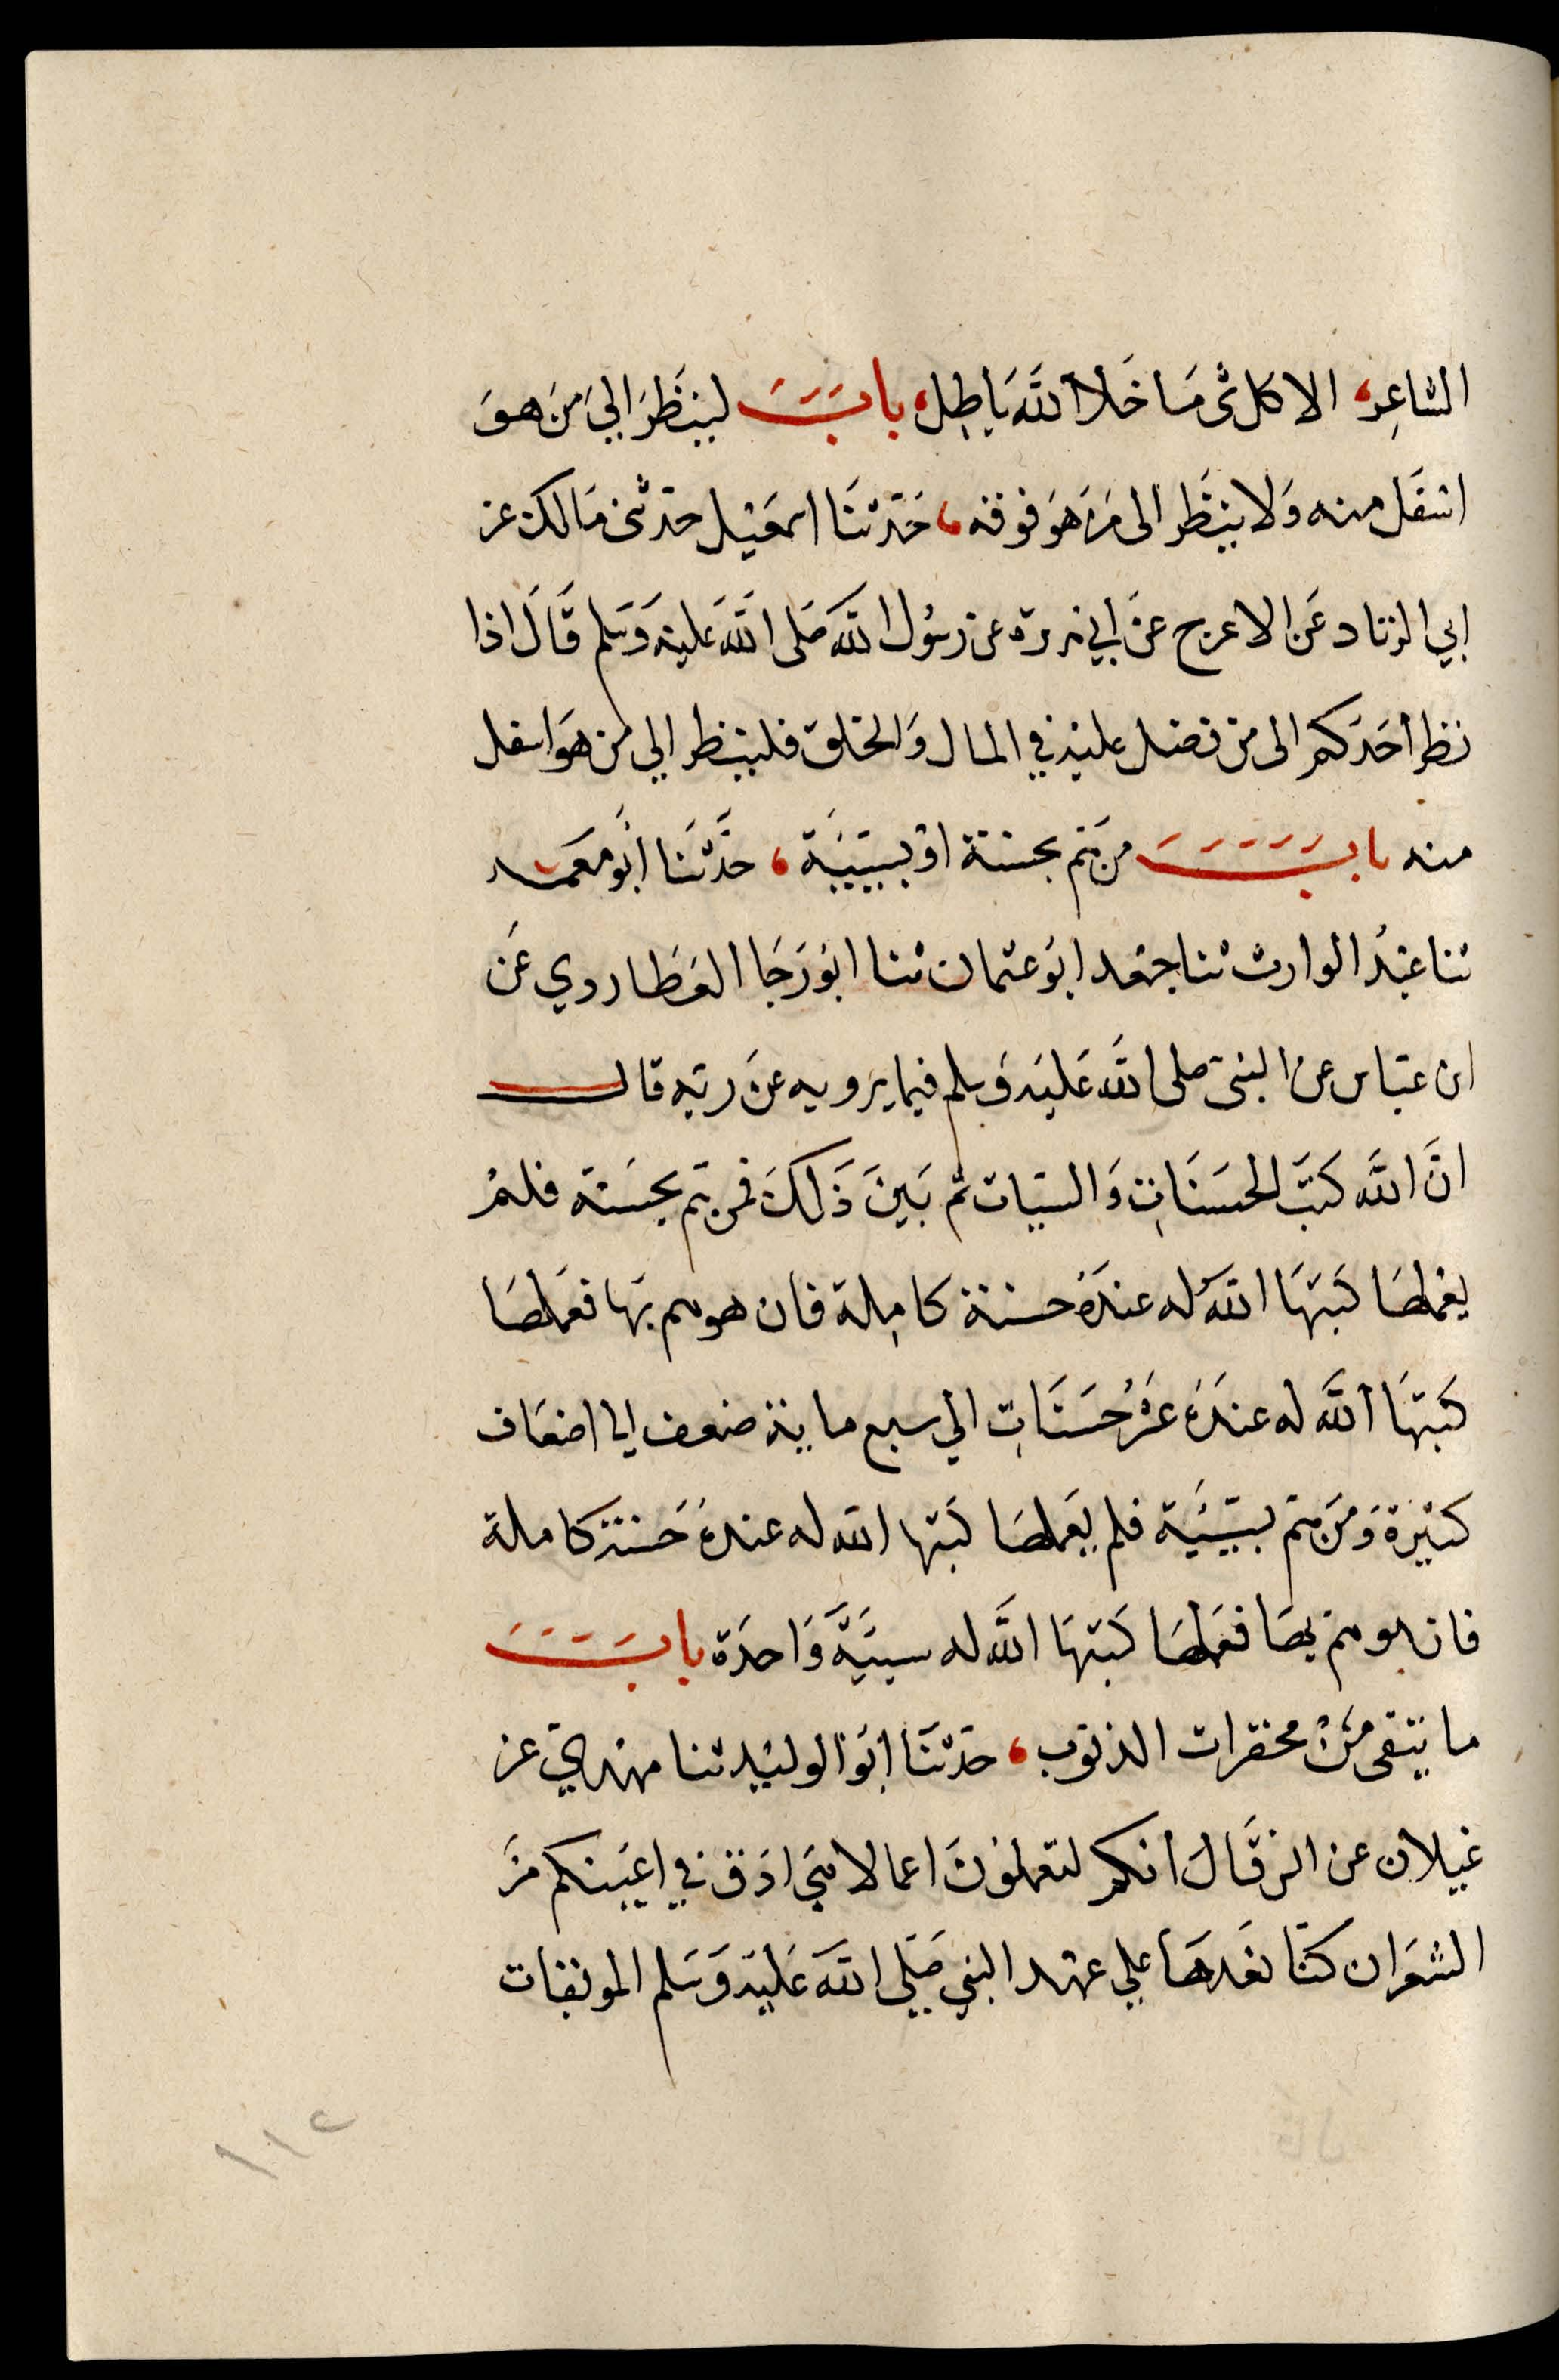 الشاعر، الا كل شى ما خلا الله باطل، باب لينظر الي من هو
اسفل منه ولا ينظر الى من هو فوقه، حدثنا اسمعيل حدثنى مالك عن
ابي الزناد عن الاعرج عن ابي هريرة عن رسول الله صلى الله عليه وسلم قال اذا
نظر احدكم الى من فضل عليه في المال والخلق فلينظر الي من هو اسفل
منه باب من هم بحسنة او بسيية، حدثنا ابو معمر
ثنا عبد الوارث ثنا جعد ابو عثمان ثنا ابو رجا العطاردي عن
ابن عباس عن النبى صلى الله عليه وسلم فيما يرويه عن ربه قال
ان الله كتب الحسنات والسيات ثم بين ذلك فمن هم بحسنة فلم
يعملها كتبها الله له عنده حسنة كاملة فان هو هم بها فعملها
كتبها الله له عنده عشر حسنات الي سبع ماية ضعف الي اضعاف
كثيرة ومن هم بسيئة فلم يعملها كتبها الله له عنده حسنة كاملة
فان هو هم بها فعملها كتبها الله له سيية واحدة باب
ما يتقى من محقرات الذنوب، حدثنا ابو الوليد ثنا مهدي عن
غيلان عن انس قال انكم لتعملون اعمالا هي ادق في اعينكم من
الشعر ان كنا نعدها علي عهد النبي صلي الله عليه وسلم الموبقات
١١٢